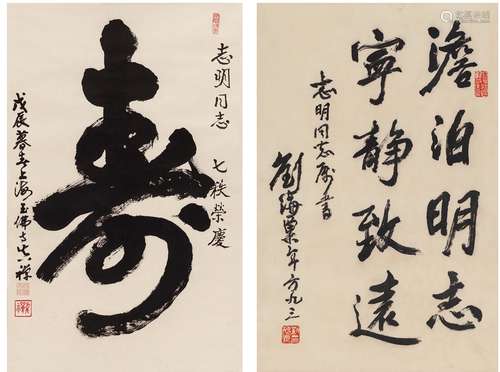 壽
志明同志 七秩榮慶
戊辰暮春上海玉佛寺真禪
澹泊明志
寧靜致遠
志明同志属書
劉海粟年方九三